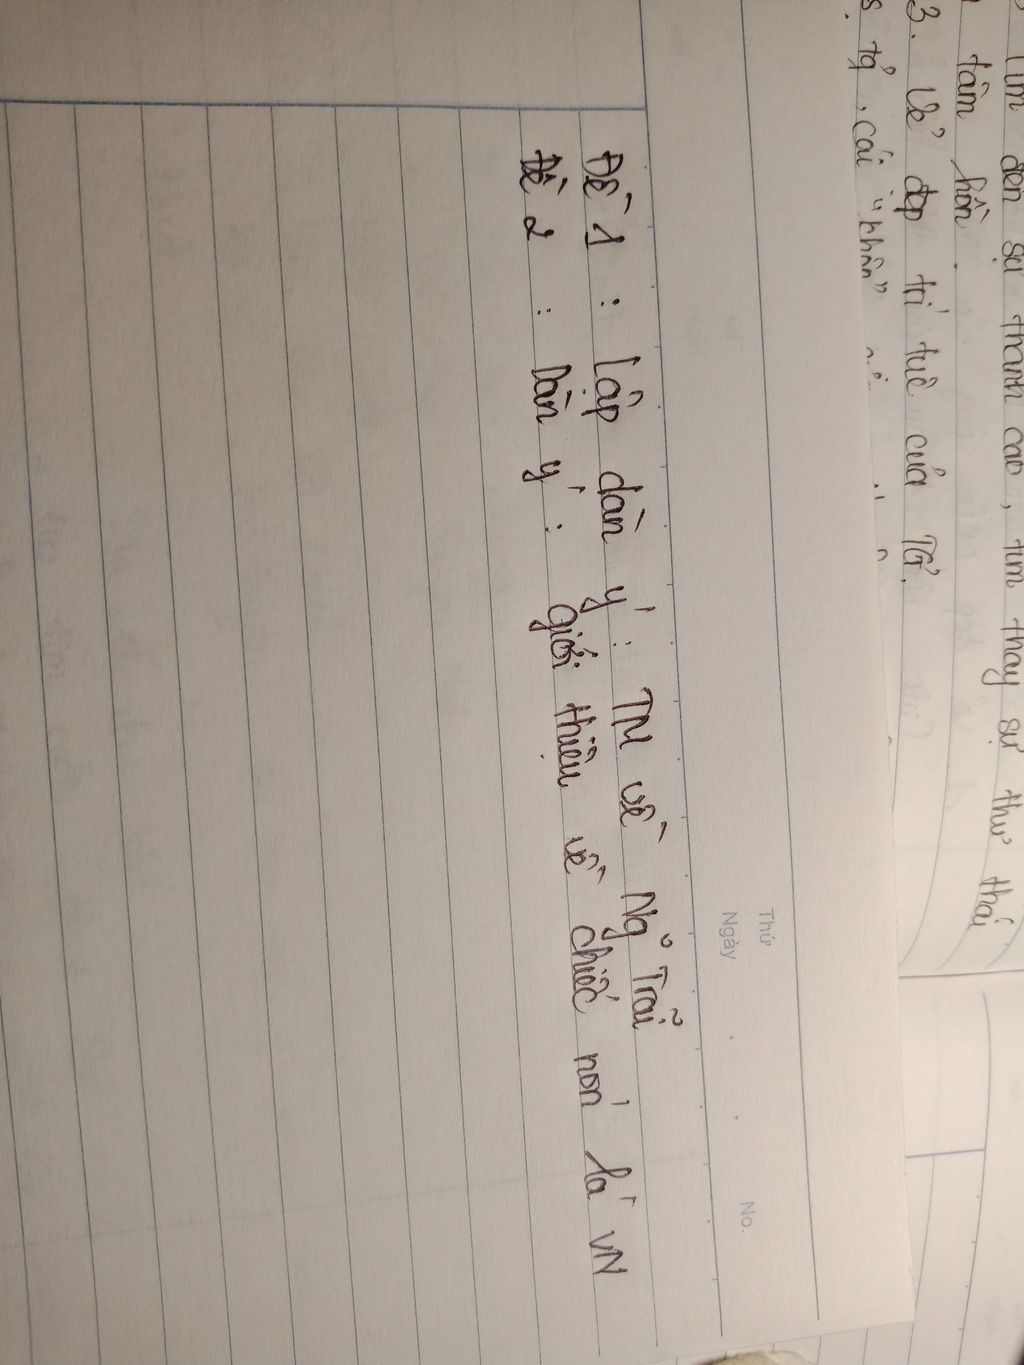 Tìm đến sự thanh cao, tìm thấy sự thư thái
tâm hồn.
3. Vẻ đẹp trí tuệ của TG.
tả, cái "nhàn"
Thứ
Ngày No.
Đề 1 : Lập dàn ý : TM về Ng~ Trãi
Đề 2 : Dàn ý : giới thiệu về chiếc nón lá VN